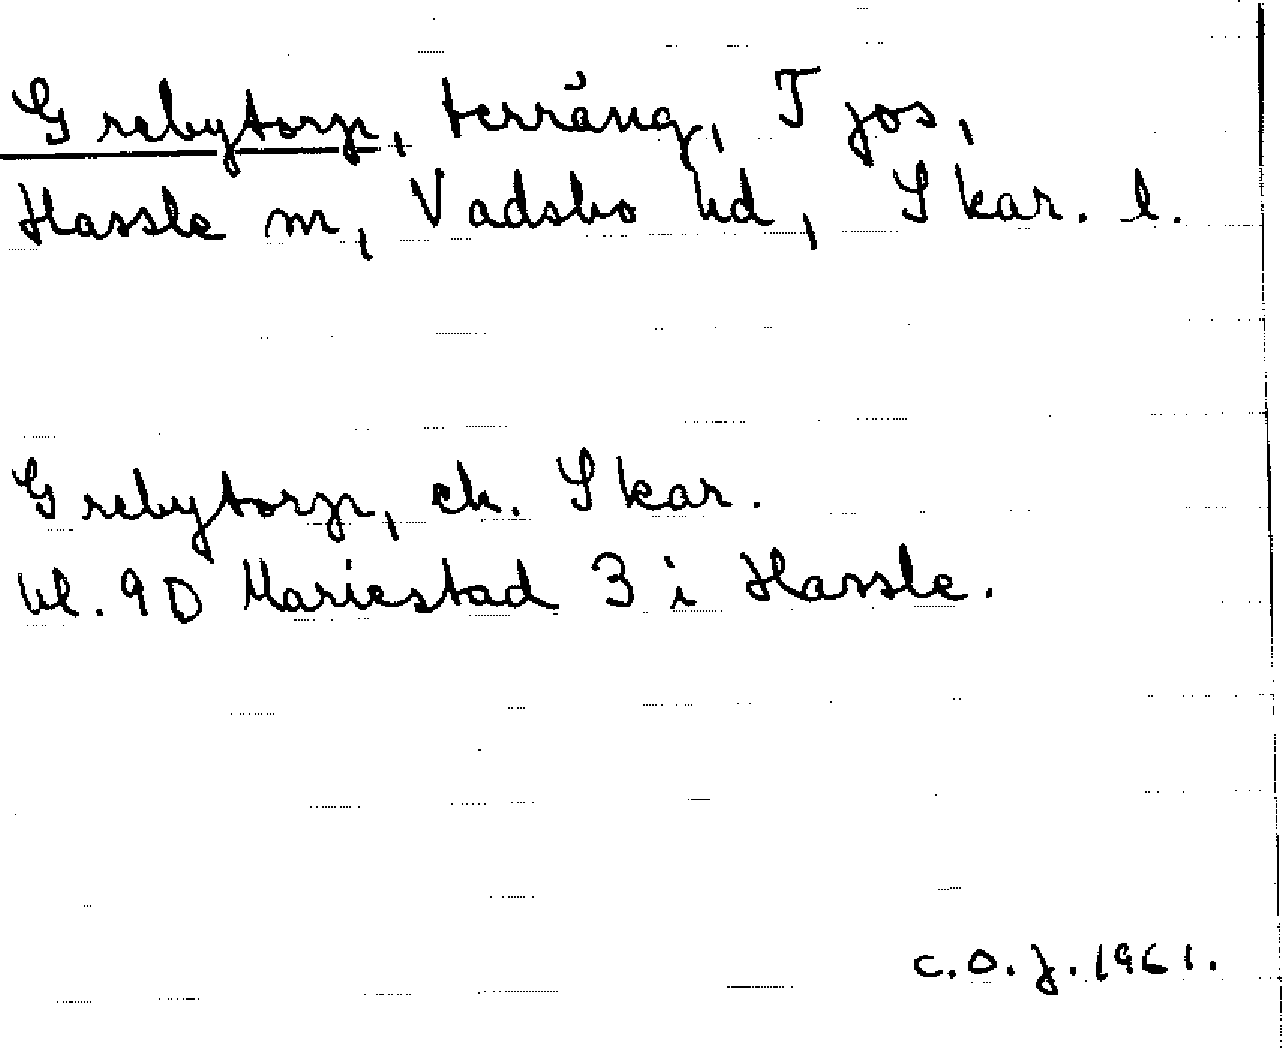 Grebytorp, terräng, Tjos,
Hassle sn, Vadsbo hd, Skar. l.
Grebytorp, ek. Skar.
bl. 9D Mariestad 3 i Hassle.
C.O.J. 1961.